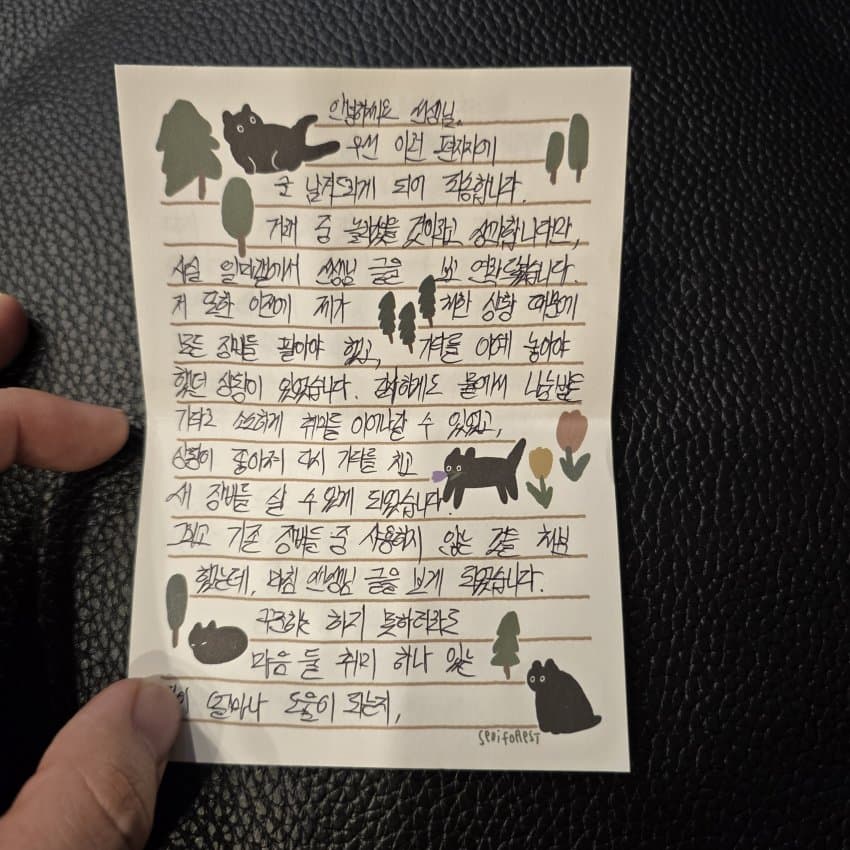 안녕하세요 선생님.
우선 이런 편지지에
글 남겨드리게 되어 죄송합니다.
거래 중 놀라셨을 것이라고 생각합니다만,
사실 일마갤에서 선생님 글을 보고 연락드렸습니다.
저 또한 이전에 제가 처한 상황 때문에
모든 장비를 팔아야 했고, 기타를 아예 놓아야
했던 상황이 있었습니다. 감사하게도 물에서 나눔받은
기타로 소소하게 취미를 이어나갈 수 있었고,
상황이 좋아져 다시 기타를 치고
새 장비를 살 수 있게 되었습니다.
그리고 기존 장비들 중 사용하지 않는 것들 처분
했는데, 마침 선생님 글을 보게 되었습니다.
꾸준히는 하지 못하더라도
마음 둘 취미 하나 있는
얼마나 도움이 되는지,
SERIFOREST